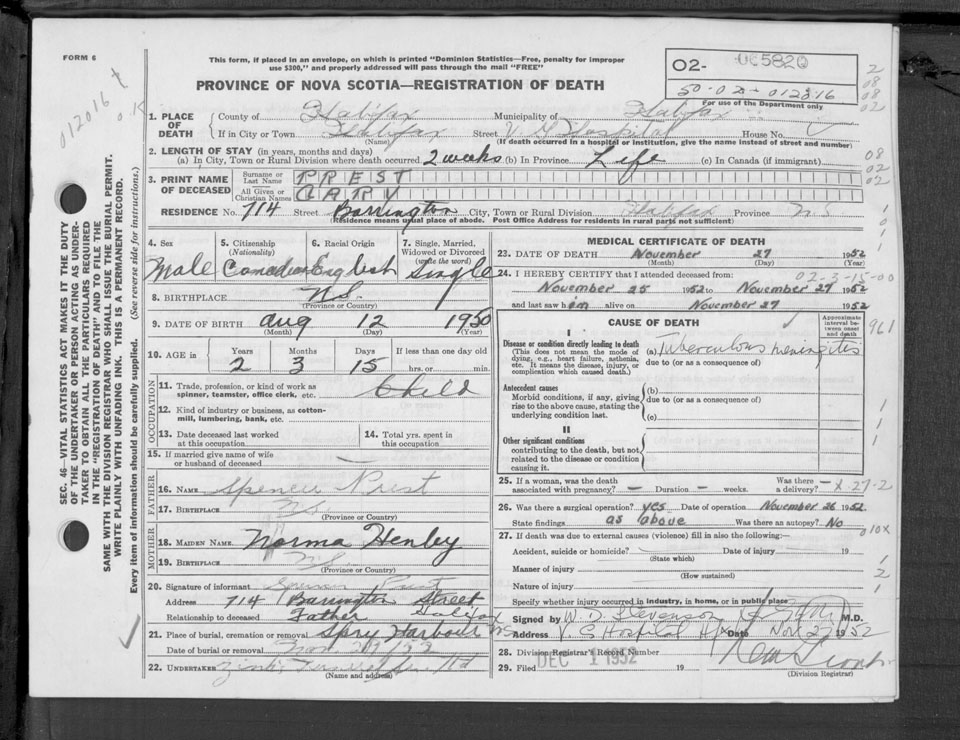 FORM 6
This form, if placed in an envelope, on which is printed "Dominion Statistics—Free, penalty for improper
use $300," and properly addressed will pass through the mail "FREE"
PROVINCE OF NOVA SCOTIA—REGISTRATION OF DEATH
O2- 005820
50-02-012816
For use of the Department only
012016
SEC. 46—VITAL STATISTICS ACT MAKES IT THE DUTY
OF THE UNDERTAKER OR PERSON ACTING AS UNDER-
TAKER TO OBTAIN ALL THE PARTICULARS REQUIRED
IN THE "REGISTRATION OF DEATH" AND TO FILE THE
SAME WITH THE DIVISION REGISTRAR WHO SHALL ISSUE THE BURIAL PERMIT.
WRITE PLAINLY WITH UNFADING INK. THIS IS A PERMANENT RECORD.
Every item of information should be carefully supplied. (See reverse side for instructions.)
1. PLACE OF DEATH
County of Halifax Municipality of Halifax
If in City or Town Halifax Street V G Hospital House No.
(Name) (If death occurred in a hospital or institution, give the name instead of street and number)
2. LENGTH OF STAY (in years, months and days)
(a) In City, Town or Rural Division where death occurred 2 weeks (b) In Province Life (c) In Canada (if immigrant)
3. PRINT NAME OF DECEASED
Surname or Last Name PREST
All Given or Christian Names GARY
RESIDENCE No. 714 Street Barrington City, Town or Rural Division Halifax Province
(Residence means usual place of abode. Post Office Address for residents in rural parts not sufficient)
4. Sex Male
5. Citizenship (Nationality) Canadian
6. Racial Origin English
7. Single, Married, Widowed or Divorced (write the word) Single
8. BIRTHPLACE N.S.
(Province or Country)
9. DATE OF BIRTH Aug 12 1950
(Month) (Day) (Year)
10. AGE in Years Months Days If less than one day old
2 3 15 hrs. or min.
OCCUPATION
11. Trade, profession, or kind of work as
spinner, teamster, office clerk, etc. Child
12. Kind of industry or business, as cotton-
mill, lumbering, bank, etc.
13. Date deceased last worked
at this occupation
14. Total yrs. spent in
this occupation
15. If married give name of wife
or husband of deceased —
FATHER
16. NAME Spencer Prest
17. BIRTHPLACE N.S.
(Province or Country)
MOTHER
18. MAIDEN NAME Norma Henley
19. BIRTHPLACE N.S.
(Province or Country)
20. Signature of informant Spencer Prest
Address 714 Barrington Street Halifax
Relationship to deceased Father
21. Place of burial, cremation or removal Spry Harbour NS
Date of burial or removal Nov. 29/52
22. UNDERTAKER
(Name and address)
MEDICAL CERTIFICATE OF DEATH
23. DATE OF DEATH November 27 1952
(Month) (Day) (Year)
24. I HEREBY CERTIFY that I attended deceased from: 02-3-15-00
November 25 1952 to November 27 1952
and last saw him alive on November 27 1952
CAUSE OF DEATH
Approximate interval between onset and death
I
Disease or condition directly leading to death
(This does not mean the mode of
dying, e.g., heart failure, asthenia,
etc. It means the disease, injury, or
complication which caused death.)
(a) Tuberculous meningitis
due to (or as a consequence of)
Antecedent causes
Morbid conditions, if any, giving
rise to the above cause, stating the
underlying condition last.
(b)
due to (or as a consequence of)
(c)
II
Other significant conditions
contributing to the death, but not
related to the disease or condition
causing it.
25. If a woman, was the death Was there
associated with pregnancy? — Duration — weeks. a delivery? — x 27-2
26. Was there a surgical operation? yes Date of operation November 26 1952
State findings as above Was there an autopsy? No
27. If death was due to external causes (violence) fill in also the following:—
Accident, suicide or homicide? Date of injury 19
(State which)
Manner of injury
(How sustained)
Nature of injury
Specify whether injury occurred in industry, in home, or in public place
Signed by W D Stevenson M.D.
Address V G Hospital Hx Date Nov. 27 1952
28. Division Registrar's Record Number
29. Filed DEC 1 1952 19
(Division Registrar)